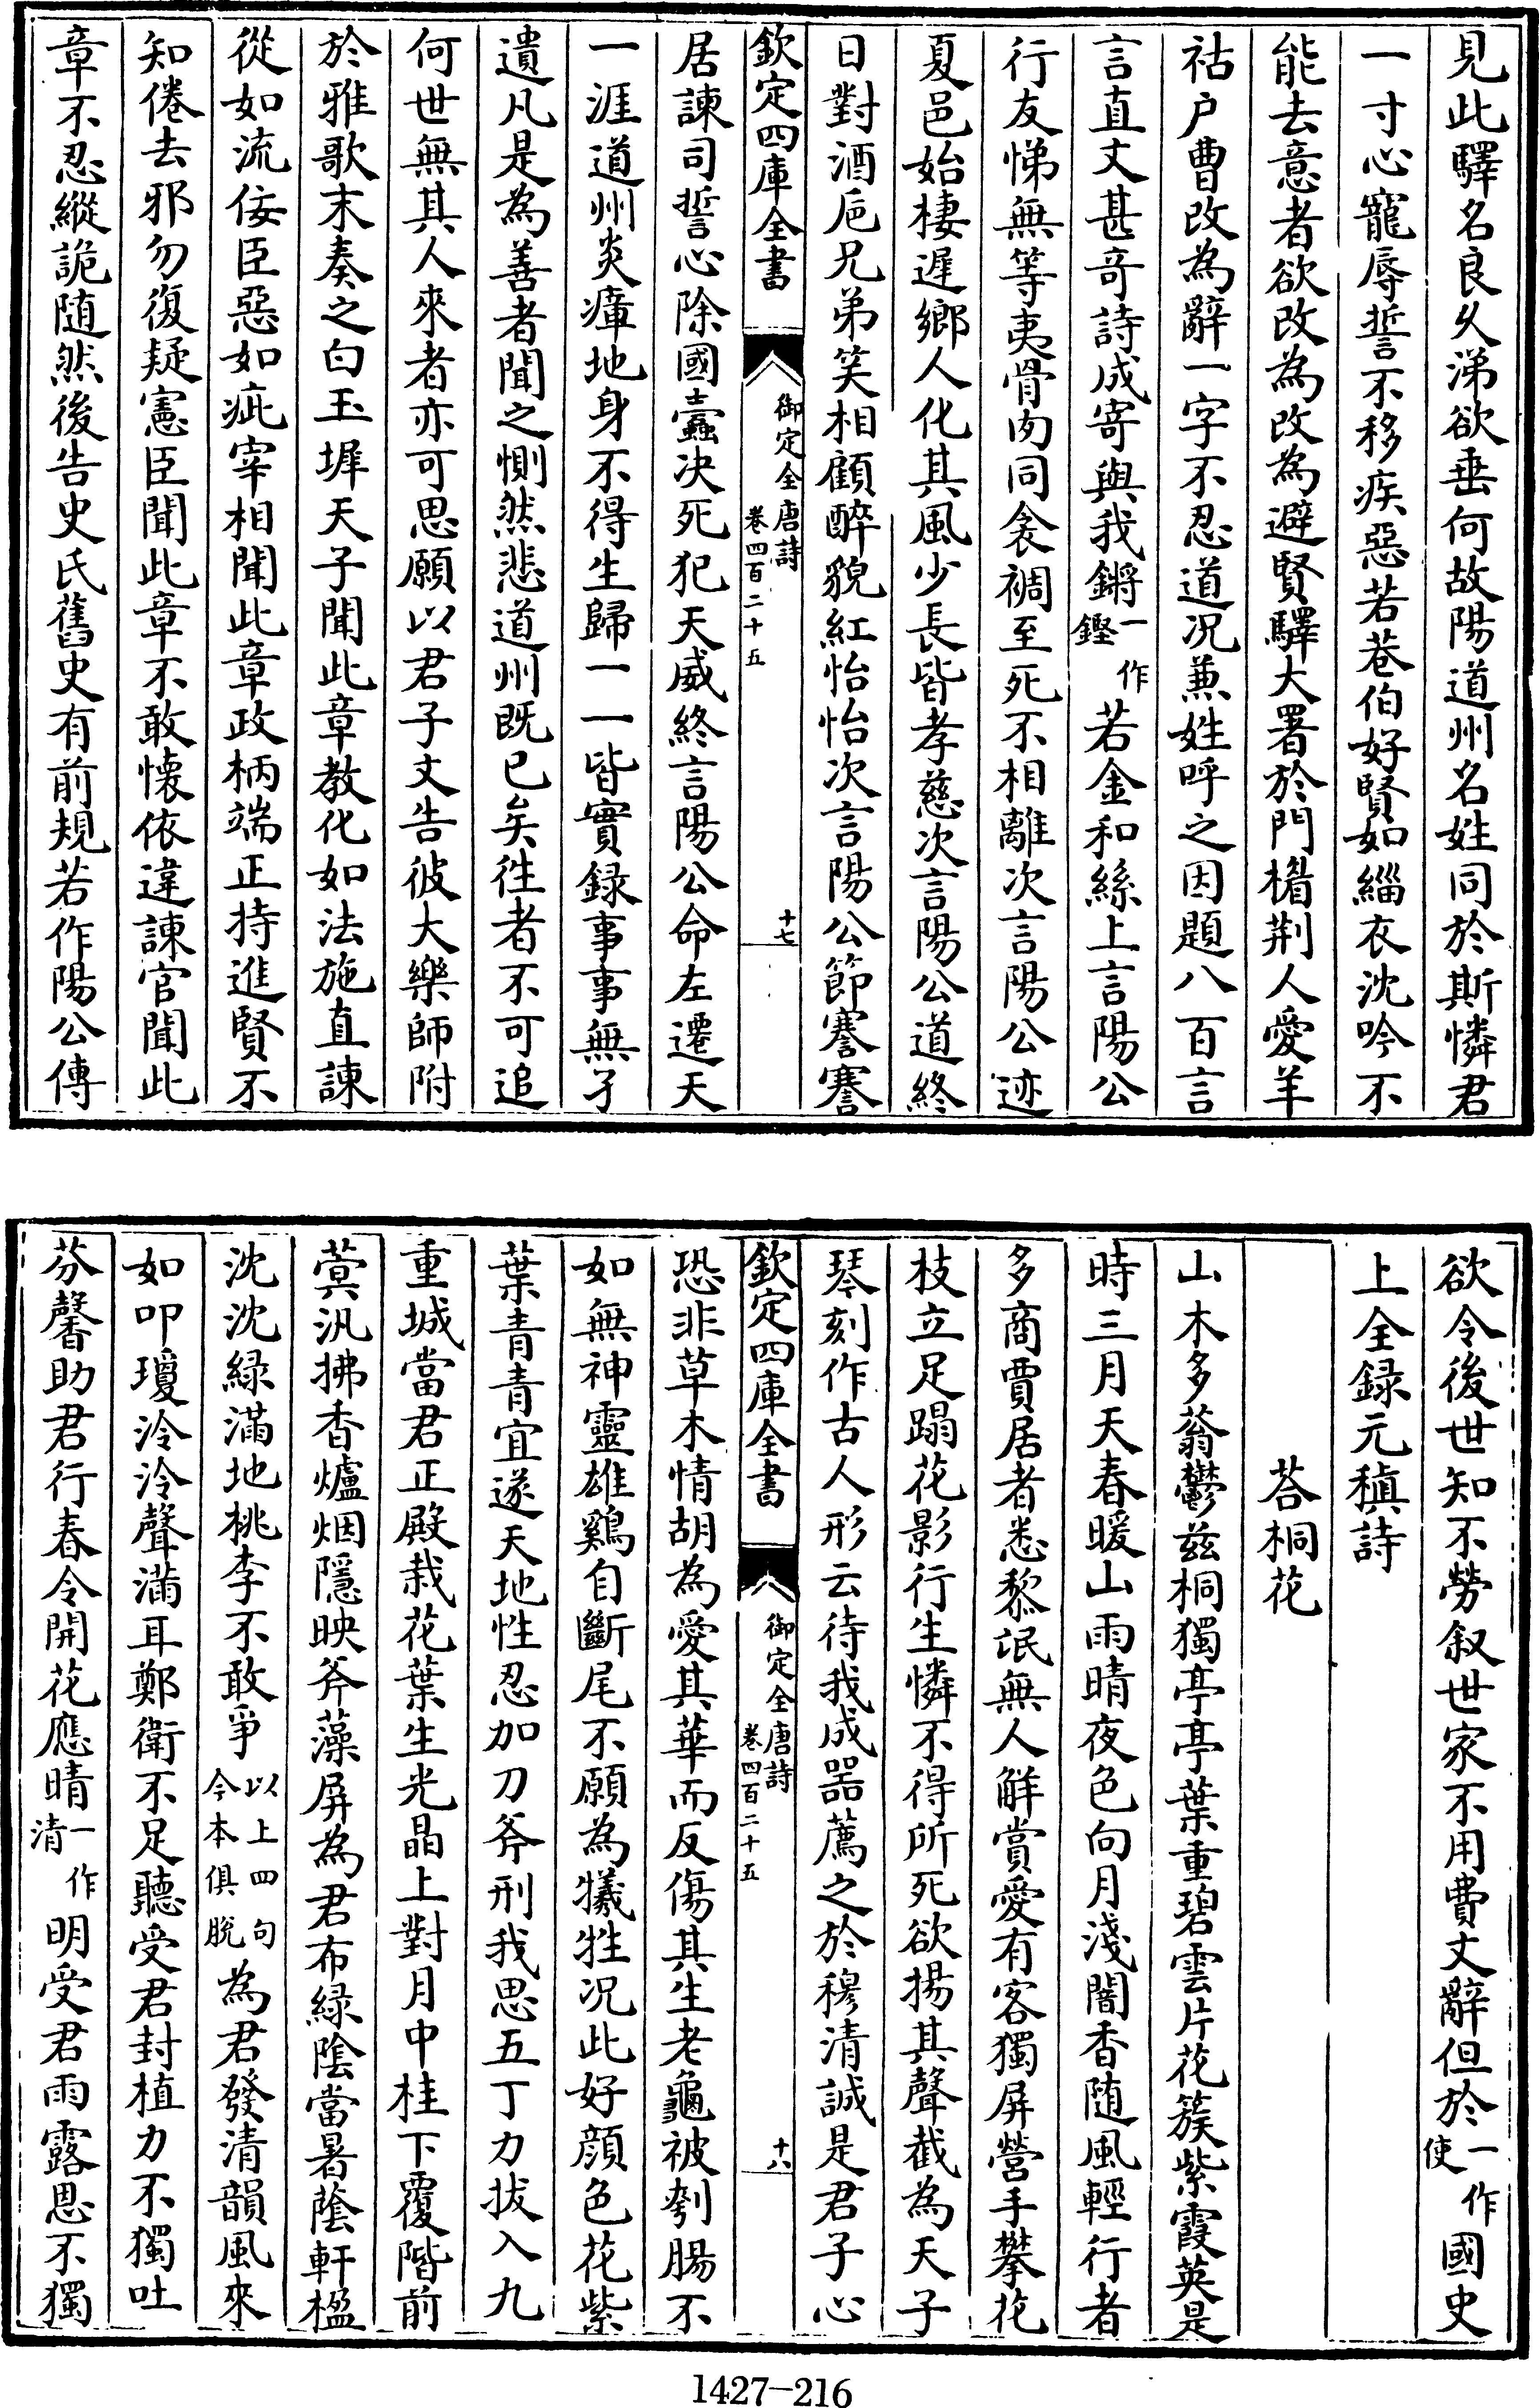 見此驛名良久涕欲垂何故陽道州名姓同於斯憐君
一寸心寵辱誓不移疾惡若巷伯好賢如緇衣沈吟不
能去意者欲改為改為避賢驛大署於門楣荆人愛羊
祜户曹改為辭一字不忍道况兼姓呼之因題八百言
言直文甚竒詩成寄與我鏘一作鏗若金和絲上言陽公
行友悌無等夷骨肉同衾裯至死不相離次言陽公迹
夏邑始棲遲鄉人化其風少長皆孝慈次言陽公道終
日對酒巵兄弟笑相顧醉貌紅怡怡次言陽公節謇謇
欽定四庫全書 御定全唐詩 卷四百二十五 十七
居諫司誓心除國蠹决死犯天威終言陽公命左遷天
一涯道州炎瘴地身不得生歸一一皆實録事事無孑
遺凡是為善者聞之惻然悲道州既已矣徃者不可追
何世無其人來者亦可思願以君子文告彼大樂師附
於雅歌末奏之白玉墀天子聞此章教化如法施直諫
從如流佞臣惡如疵宰相聞此章政柄端正持進賢不
知倦去邪勿復疑憲臣聞此章不敢懷依違諫官聞此
章不忍縱詭随然後告史氏舊史有前規若作陽公傳
欲令後世知不勞叙世家不用費文辭但於一作使國史
上全録元稹詩
荅桐花
山木多蓊鬱兹桐獨亭亭葉重碧雲片花簇紫霞英是
時三月天春暖山雨晴夜色向月淺闇香随風輕行者
多商賈居者悉黎氓無人解賞愛有客獨屏營手攀花
枝立足蹋花影行生憐不得所死欲揚其聲截為天子
琴刻作古人形云待我成器薦之於穆清誠是君子心
欽定四庫全書 御定全唐詩 卷四百二十五 十八
恐非草木情胡為愛其華而反傷其生老龜被刳腸不
如無神靈雄鷄自斷尾不願為犧牲况此好顔色花紫
葉青青宜遂天地性忍加刀斧刑我思五丁力拔入九
重城當君正殿栽花葉生光晶上對月中桂下覆階前
蓂汎拂香爐烟隱映斧藻屏為君布緑陰當暑蔭軒楹
沈沈緑滿地桃李不敢爭以上四句今本俱脱為君發清韻風來
如叩瓊泠泠聲滿耳鄭衛不足聽受君封植力不獨吐
芬馨助君行春令開花應晴一作清明受君雨露恩不獨
1427-216